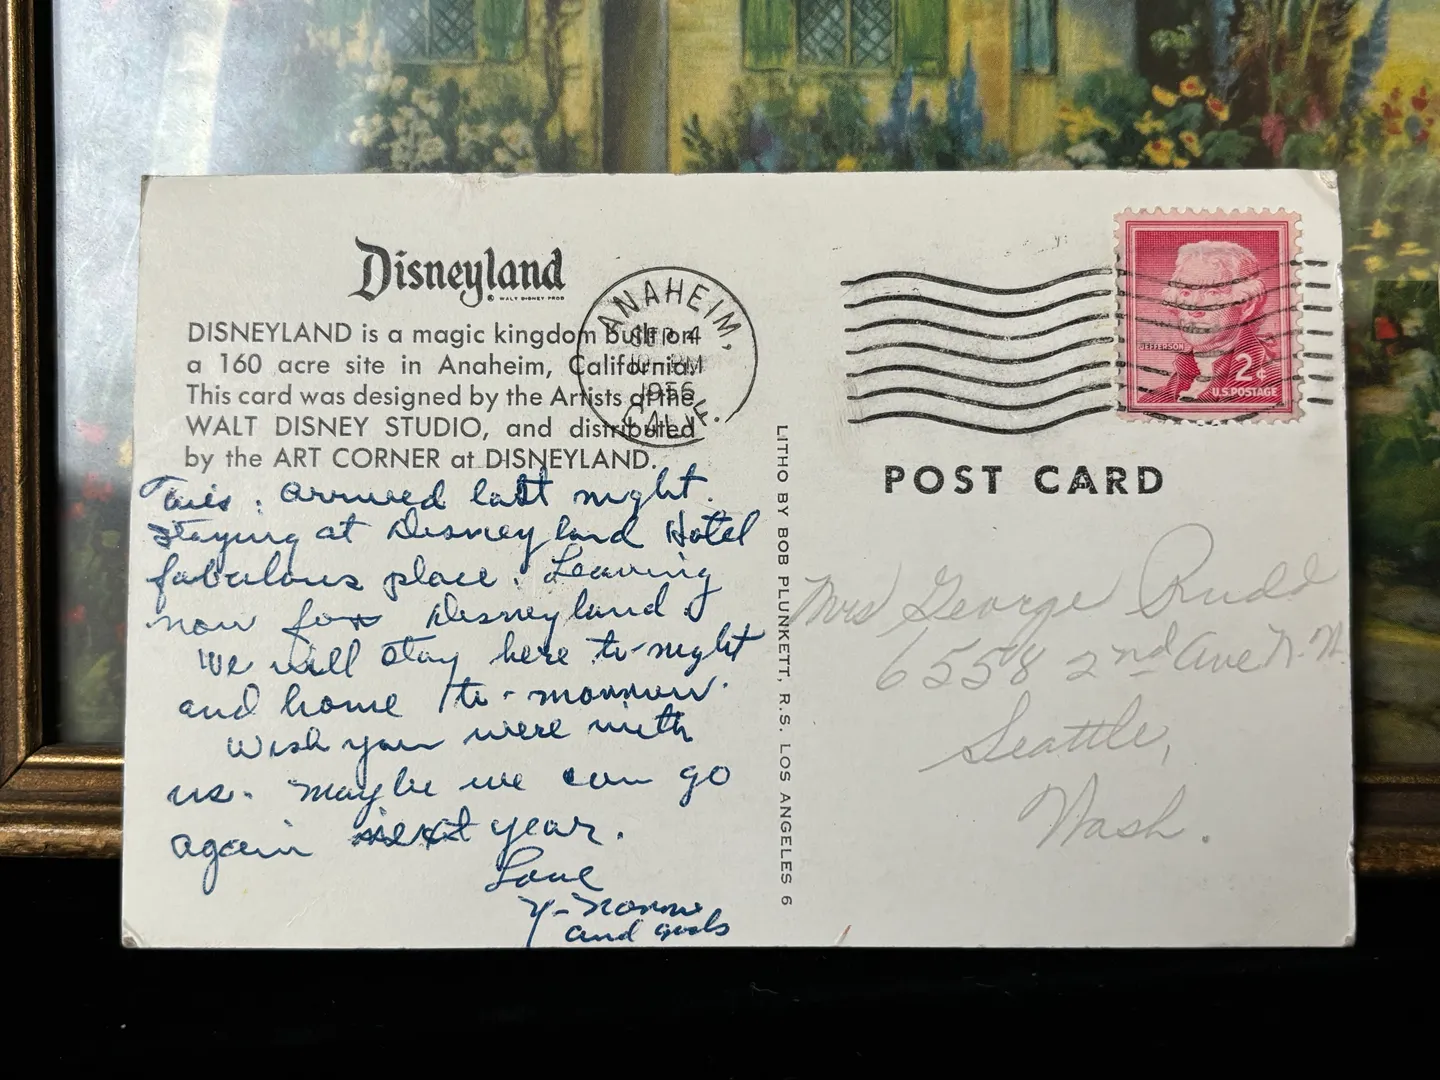 Disneyland
® WALT DISNEY PROD
DISNEYLAND is a magic kingdom built on
a 160 acre site in Anaheim, California.
This card was designed by the Artists of the
WALT DISNEY STUDIO, and distributed
by the ART CORNER at DISNEYLAND.
arrived last night.
Staying at Disneyland Hotel
fabulous place. Leaving
now for Disneyland.
We will stay here to-night
and home to-morrow.
Wish you were with
us. Maybe we can go
again next year.
Love
and
ANAHEIM,
SEP 4
PM
1956
CALIF.
LITHO BY BOB PLUNKETT, R.S. LOS ANGELES 6
JEFFERSON
2¢
U.S. POSTAGE
POST CARD
Mrs George Rudd
6558 2nd Ave N.W.
Seattle,
Wash.